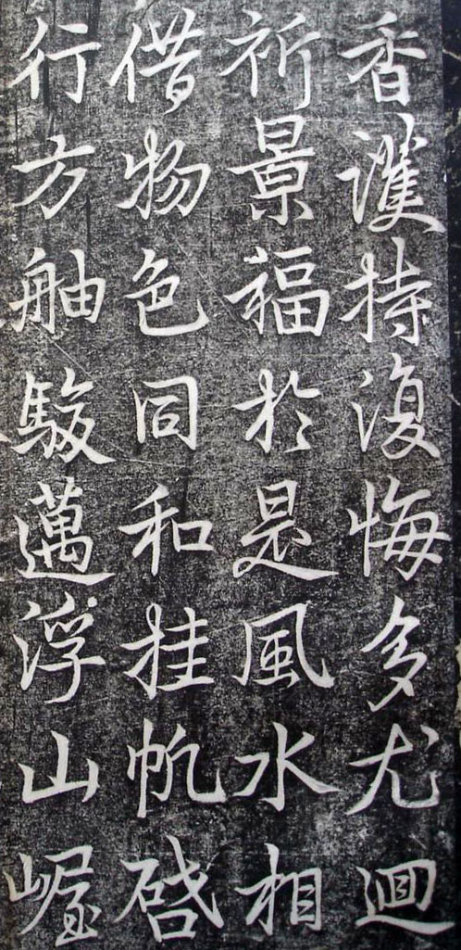 香護持復悔多尤迴
祈景福於是風水相
借物色同和挂帆啓
行方舳駿邁浮山